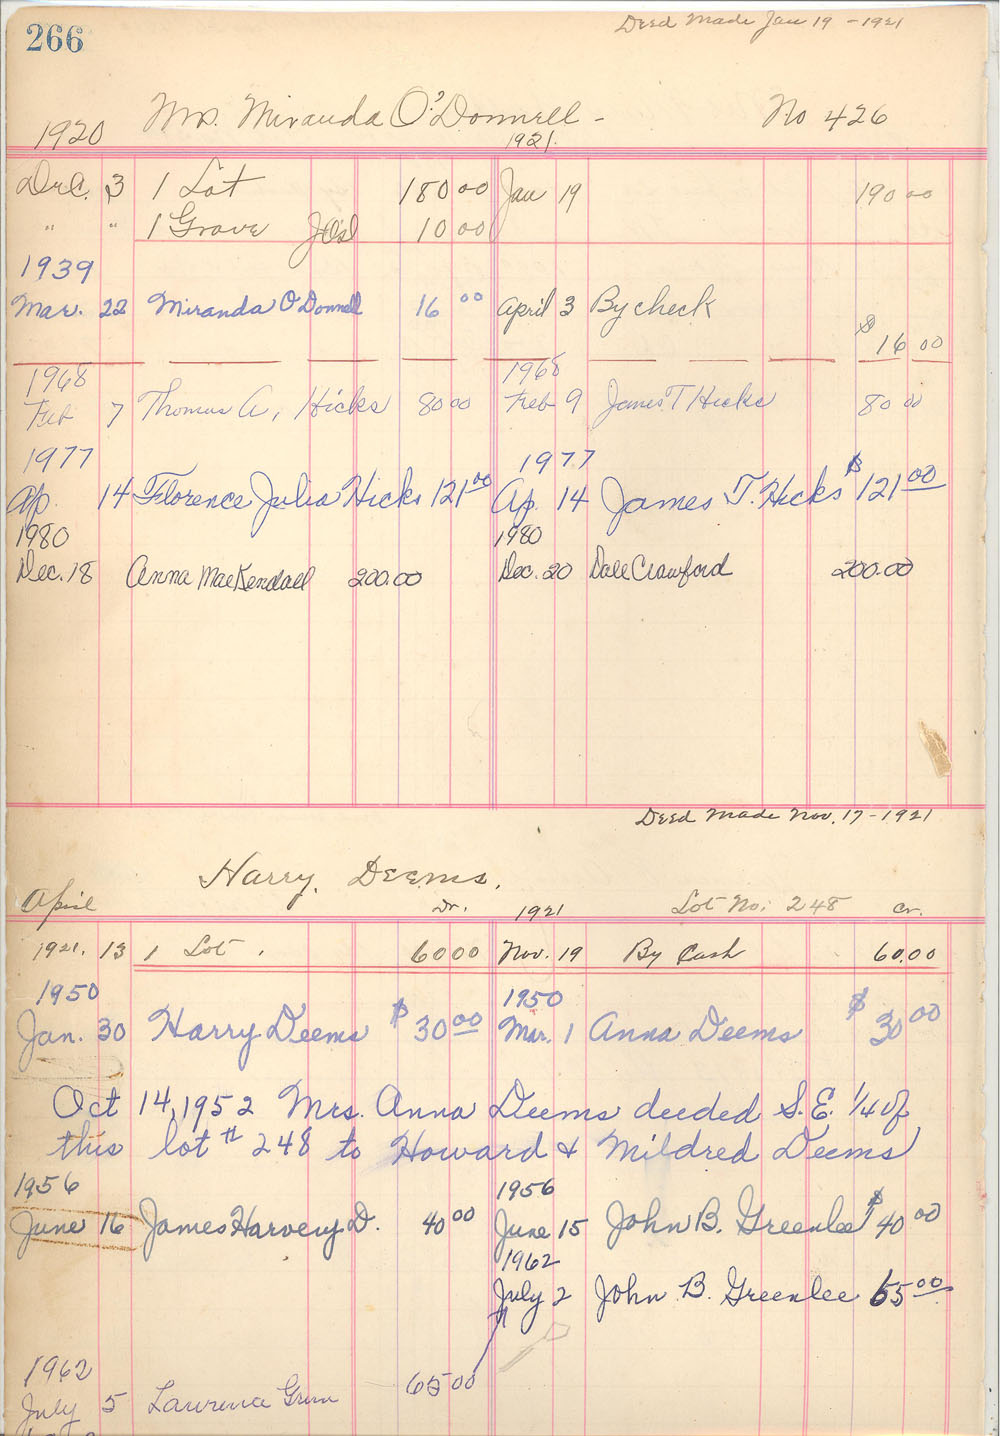 266
Deed Made Jan 19 - 1921
Mrs. Miranda O'Donnell - No 426
1920 1921.
Dec. 3 1 Lot 180 00 Jan 19 190 00
" " 1 Grave 10 00
1939
Mar. 22 Miranda O'Donnell 16 00 April 3 By check
$16 00
1968 1968
Feb 7 Thomas A, Hicks 80 00 Feb 9 James T Hicks 80 00
1977 1977
Ap. 14 Florence Julia Hicks 121 00 Ap. 14 James T. Hicks $121 00
1980 1980
Dec. 18 Anna MacKendall 200.00 Dec. 20 Dale Crawford 200.00
Deed Made Nov. 17 - 1921
Harry. Deems.
April Dr. 1921 Lot No: 248 Cr.
1921. 13 1 Lot. 60 00 Nov. 19 By Cash 60.00
1950 1950
Jan. 30 Harry Deems $30 00 Mar. 1 Anna Deems $30 00
Oct 14, 1952 Mrs. Anna Deems deeded S.E. 1/4 of
this lot # 248 to Howard & Mildred Deems
1956 1956
June 16 James Harvey D. 40 00 June 15 John B. Greenlee $40 00
1962
July 2 John B. Greenlee 65 00
1962
July 5 Lawrence 65 00